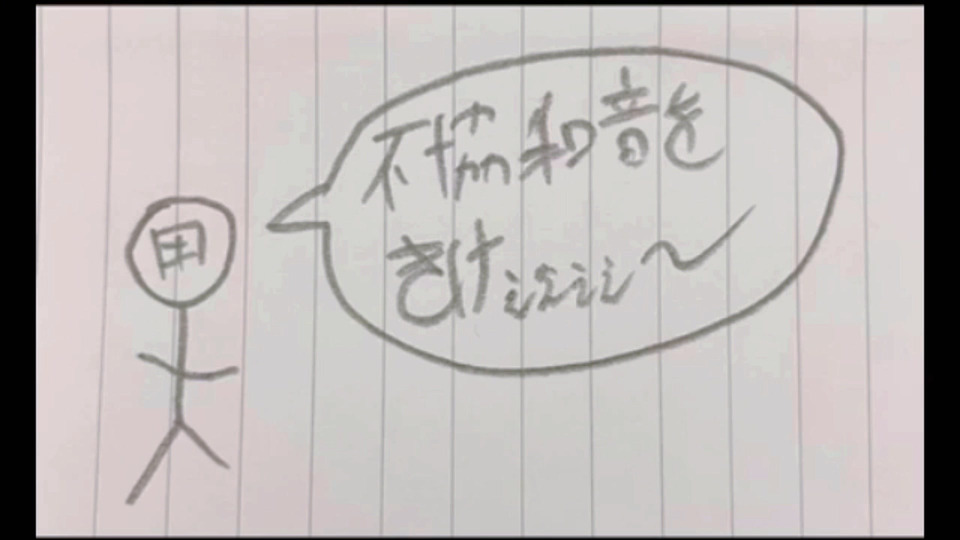 田
不協和音を
きけぇぇぇぇ〜